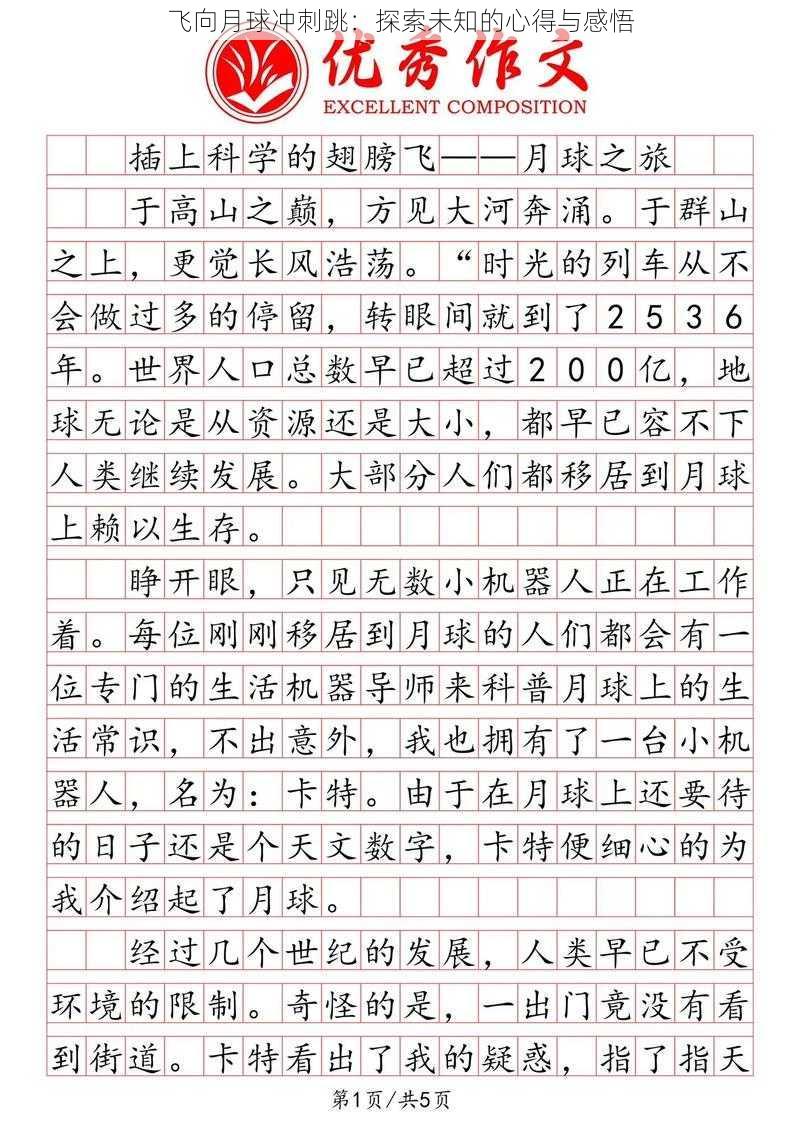 飞向月球冲刺跳：探索未知的心得与感悟
优秀作文
EXCELLENT COMPOSITION
插上科学的翅膀飞——月球之旅
于高山之巅，方见大河奔涌。于群山
之上，更觉长风浩荡。“时光的列车从不
会做过多的停留，转眼间就到了2536
年。世界人口总数早已超过200亿，地
球无论是从资源还是大小，都早已容不下
人类继续发展。大部分人们都移居到月球
上赖以生存。
睁开眼，只见无数小机器人正在工作
着。每位刚刚移居到月球的人们都会有一
位专门的生活机器导师来科普月球上的生
活常识，不出意外，我也拥有了一台小机
器人，名为：卡特。由于在月球上还要待
的日子还是个天文数字，卡特便细心的为
我介绍起了月球。
经过几个世纪的发展，人类早已不受
环境的限制。奇怪的是，一出门竟没有看
到街道。卡特看出了我的疑惑，指了指天
第1页/共5页